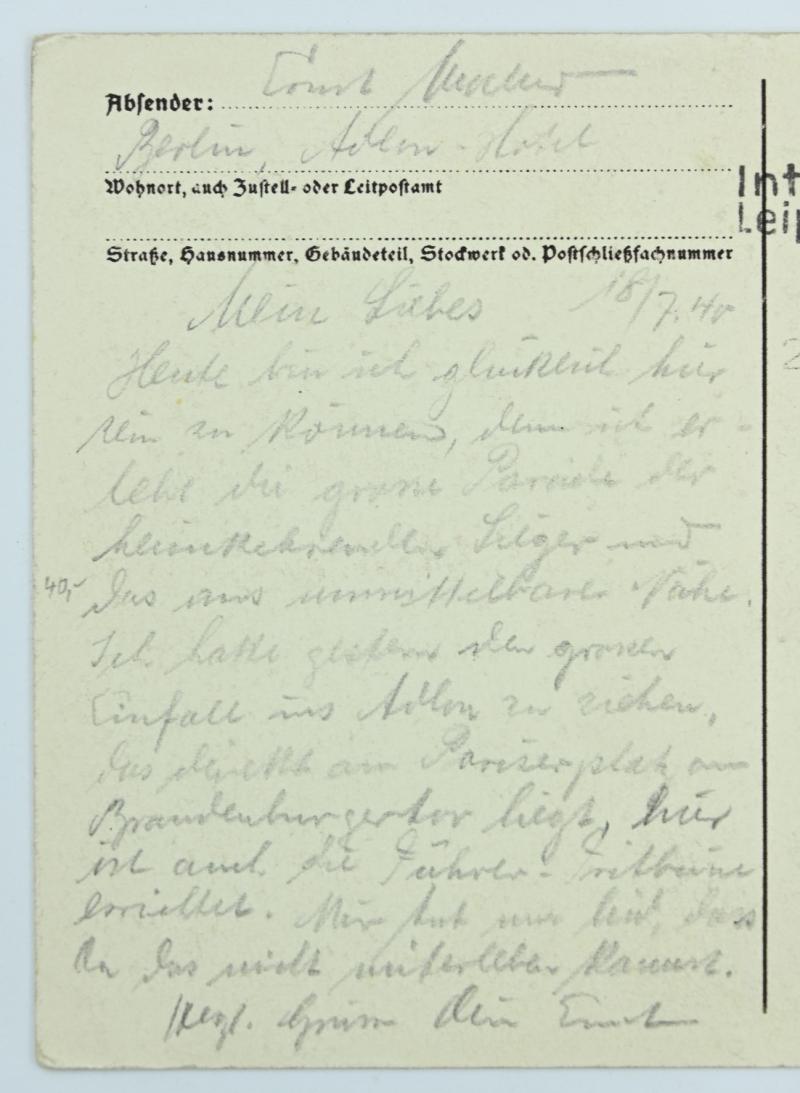 Absender: Ernst
Berlin, Adlon-Hotel
Wohnort, auch Zustell- oder Leitpostamt
Int
Leip
Straße, Hausnummer, Gebäudeteil, Stockwerk od. Postschließfachnummer
Mein Liebes 18/7.40
Heute bin ich glücklich hier
sein zu können, denn ich er-
lebe die grosse Parade der
heimkehrenden Sieger und
40,-
das aus unmittelbarer Nähe.
Ich hatte gestern den grossen
Einfall ins Adlon zu ziehen,
das direkt am Pariserplatz am
Brandenburgertor liegt, hier
ist auch die Führer-Tribüne
errichtet. Mir tut nur leid, dass
Du das nicht miterleben kannst.
Herzl. Gruss Dein Ernst